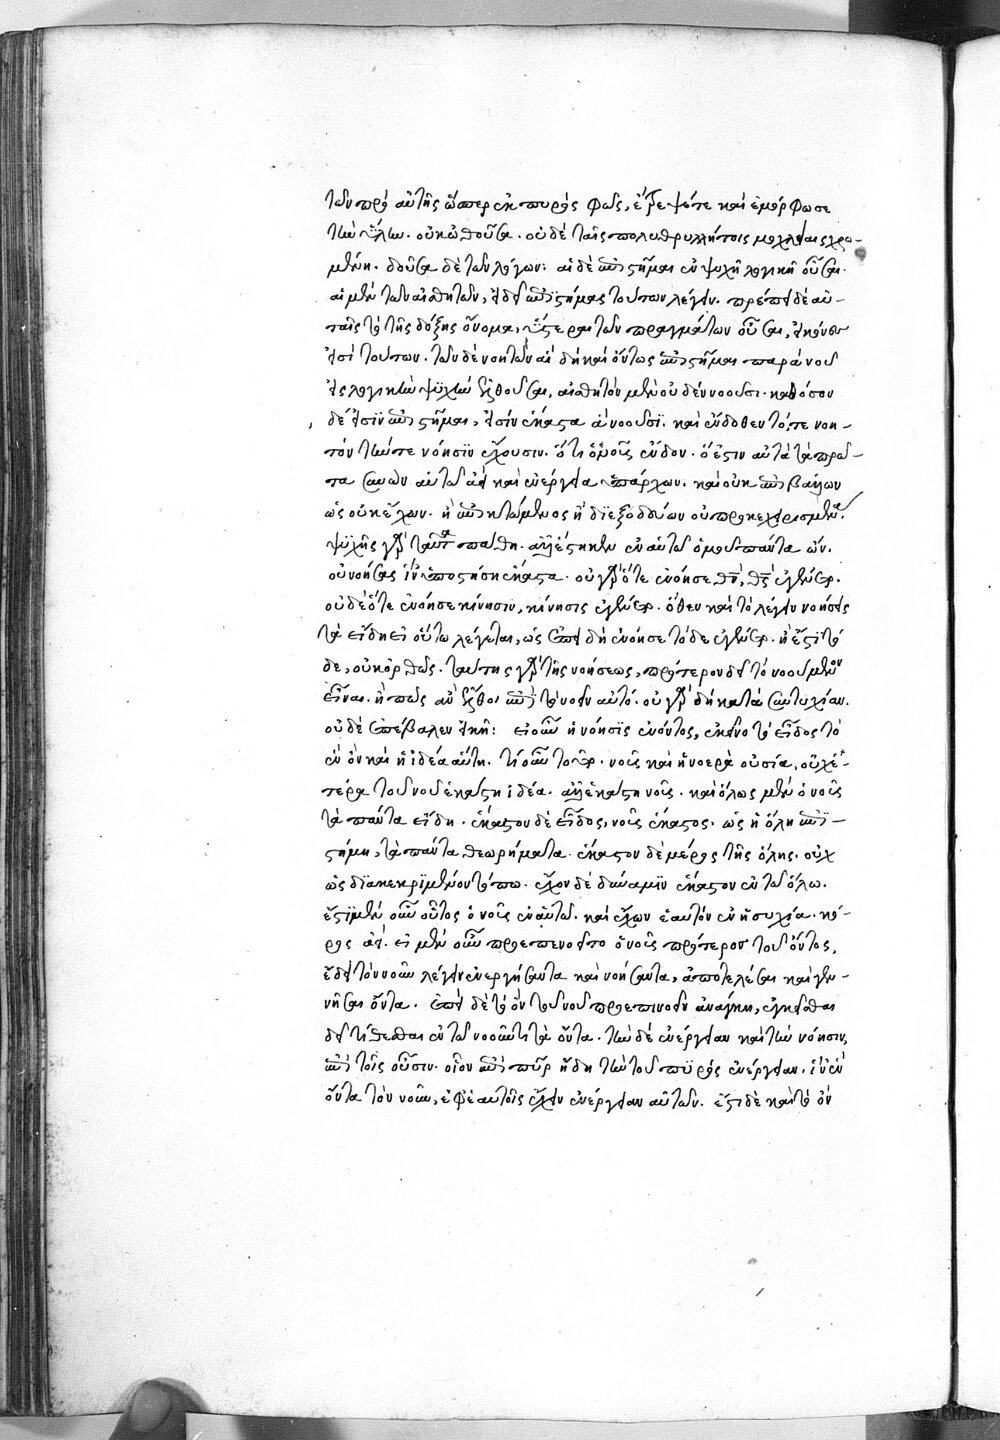 τῶν πρὸ αὐτῆς ὥσπερ ἐκ πυρὸς φῶς, ἔτρεψέ τε καὶ ἐμόρφωσε
τὴν ὕλην. οὐκ ὠθοῦσα. οὐδὲ ταῖς πολυθρυλλήτοις μοχλείαις χρω-
μένη. δοῦσα δὲ τῶν λόγων: αἱ δὲ ἐπιστῆμαι ἐν ψυχῆ λογικῆ οὖσαι.
αἱ μὲν τῶν αἰσθητῶν, εἰ δεῖ ἐπιστήμας τούτων λέγειν. πρέπει δὲ αὐ-
ταῖς τὸ τῆς δόξης ὄνομα, ὕστεραι τῶν πραγμάτων οὖσαι, εἰκόνες
εἰσὶ τούτων. τῶν δὲ νοητῶν αἳ δὴ καὶ ὄντως ἐπιστῆμαι παρὰ νοῦ
εἰς λογικὴν ψυχὴν ἐλθοῦσαι, αἰσθητὸν μὲν οὐδὲν νοοῦσι. καθόσον
δέ εἰσϊν ἐπιστῆμαι, εἰσὶν ἕκαστα ἃ νοοῦσϊ. καὶ ἔνδοθεν τό τε νοη-
τὸν τήν τε νόησϊν ἔχουσιν. ὅτι ὁ νοῦς ἔνδον. ὅ ἐστιν αὐτὰ τὰ πρῶ-
τα συνὼν αὐτῶ ἀεὶ καὶ ἐνέργεια ὑπάρχων. καὶ οὐκ ἐπιβάλλων
ὡς οὐκ ἔχων. ἢ ἐπικτώμενος ἢ διεξοδεύων οὐ προκεχειρισμένα.
ψϋχῆς γὰρ ταῦτα πάθη. ἀλλ' ἕστηκεν ἐν αὑτῶ ὁμοῦ πάντα ὤν.
οὐ νοήσας ἵν' ὑποστήση ἕκαστα. οὐ γὰρ ὅτε ἐνόησε θν, θς ἐγένετο.
οὐδὲ ὅτε ἐνόησε κίνησιν, κίνησις ἐγένετο. ὅθεν καὶ τὸ λέγειν νοήσεις
τὰ εἴδη εἰ οὕτω λέγεται, ὡς ἐπειδὴ ἐνόησε τόδε ἐγένετο. ἢ ἔστϊ τό
δε, οὐκ ὀρθῶς. ταύτης γὰρ τῆς νοήσεως, πρότερον δεῖ τὸ νοούμενον
εἶναι. ἢ πῶς ἂν ἔλθοι ἐπὶ τὸ νοεῖν αὐτό. οὐ γὰρ δὴ κατὰ συντυχίαν.
οὐδὲ ἐπέβαλεν εἰκῆ: εἰ οὖν ἡ νόησϊς ἐνόντος, ἐκεῖνο τὸ εἶδος τὸ
ἐν ὂν καὶ ἡ ἰδέα αὕτη. τί οὖν τοῦτο. νοῦς καὶ ἡ νοερὰ οὐσία, οὐχ ἑ-
τέρα τοῦ νοῦ ἑκάστη ἰδέα. ἀλλ' ἑκάστη νοῦς. καὶ ὅλως μὲν ὁ νοῦς
τὰ πάντα εἴδη. ἕκαστον δὲ εἶδος, νοῦς ἕκαστος. ὡς ἡ ὅλη ἐπϊ-
στήμη, τὰ πάντα θεωρήματα. ἕκαστον δὲ μέρος τῆς ὅλης. οὐχ
ὡς διακεκρϊμένον τόπω. ἔχον δὲ δύναμϊν ἕκαστον ἐν τῶ ὅλω.
ἔστϊ μὲν οὖν οὗτος ὁ νοῦς ἐν αὑτῶ. καὶ ἔχων ἑαυτὸν ἐν ἡσυχία. κό-
ρος ἀεί. εἰ μὲν οὖν προεπενοεῖτο ὁ νοῦς πρότερον τοῦ ὄντος,
ἔδει τὸν νοῦν λέγειν ἐνεργήσαντα καὶ νοήσαντα, ἀποτελέσαι καὶ γεν-
νῆσαι ὄντα. ἐπεὶ δὲ τὸ ὂν τοῦ νοῦ προεπινοεῖν ἀνάγκη, ἐγκεῖσθαι
δεῖ τίθεσθαι ἐν τῶ νοοῦντι τὰ ὄντα. τὴν δὲ ἐνέργειαν καὶ τὴν νόησιν,
ἐπὶ τοῖς οὖσιν. οἷον ἐπὶ πῦρ ἤδη τὴν τοῦ πϋρὸς ἐνέργειαν. ἵν' ἓν
ὄντα τὸν νοῦν, ἐφ' ἑαυτοῖς ἔχειν ἐνέργειαν αὐτῶν. ἔστι δὲ καὶ τὸ ὂν